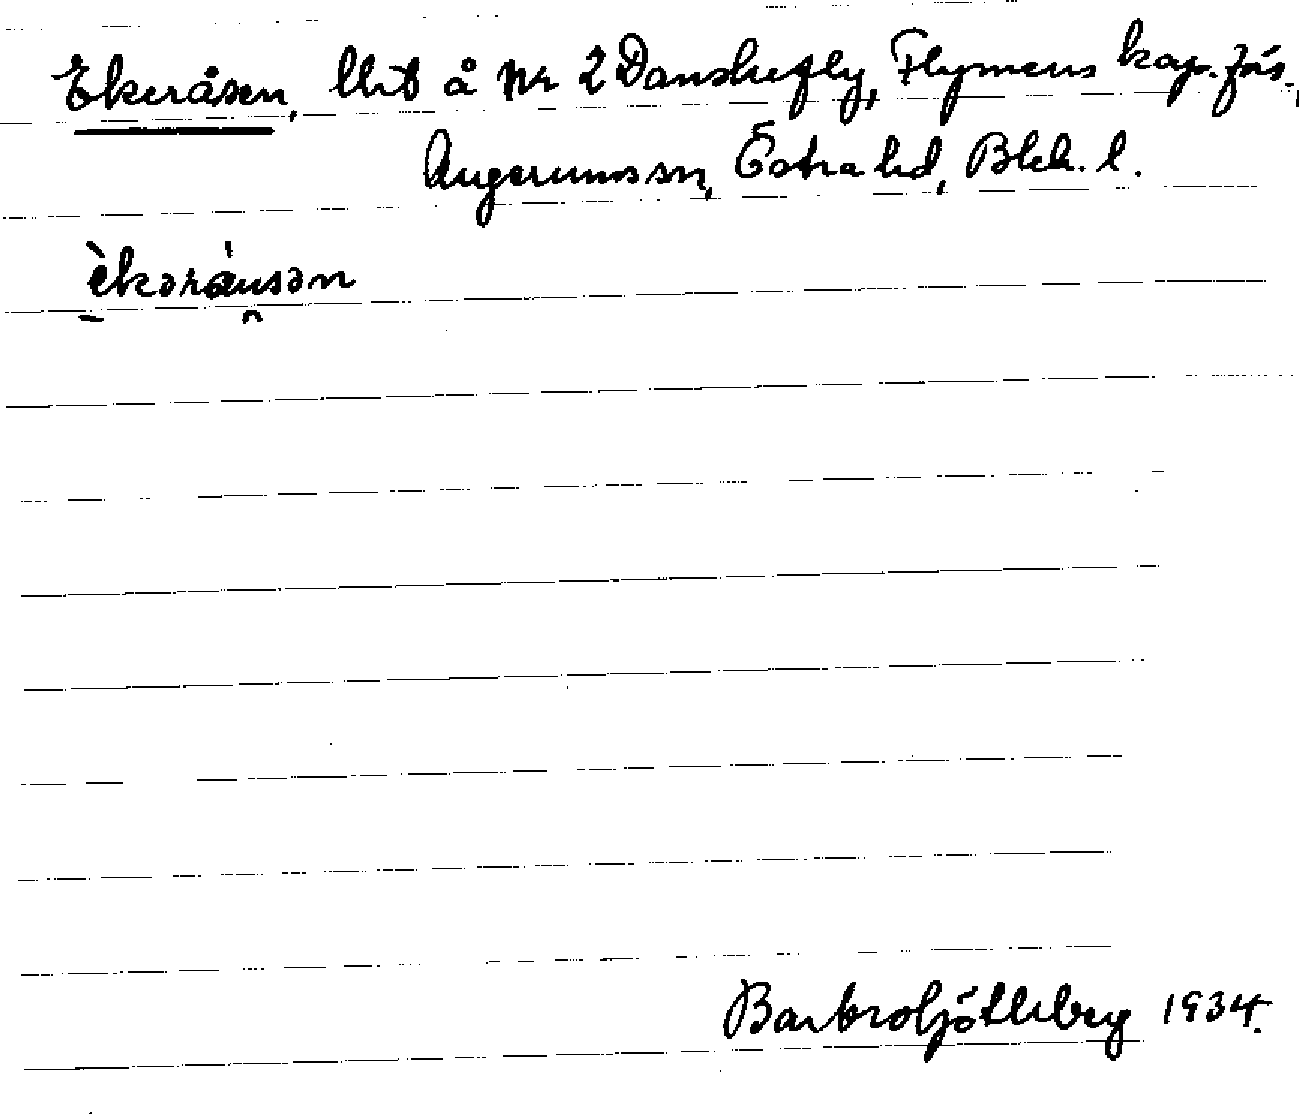 Ekeråsen, lht å Nr 2 Danskefly, Flymens kap.förs.,
Augerums sn, Östra hd, Blek. l.
èkəráusən
Barbro Söttberg 1934.